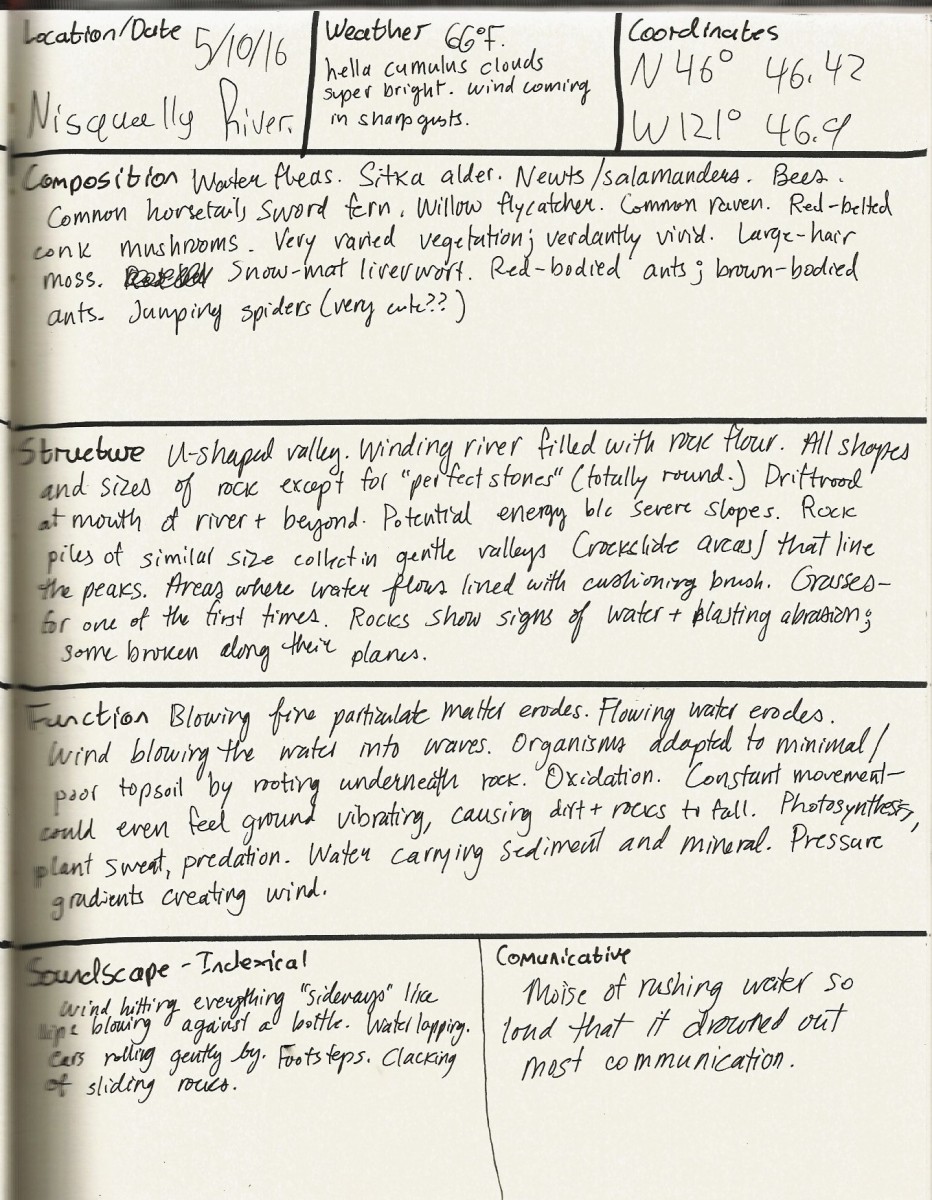 Location/Date 5/10/16
Nisqually River.
Weather 66°F.
hella cumulus clouds
super bright. wind coming
in sharp gusts.
Coordinates
N 46° 46.42
W 121° 46.9
Composition Water fleas. Sitka alder. Newts/salamanders. Bees.
Common horsetails, Sword fern. Willow flycatcher. Common raven. Red-belted
conk mushrooms. Very varied vegetation; verdantly vivid. Large-hair
moss. Snow-mat liverwort. Red-bodied ants; brown-bodied
ants. Jumping spiders (very cute??)
Structure U-shaped valley. Winding river filled with rock flour. All shapes
and sizes of rock except for "perfect stones" (totally round.) Driftwood
at mouth of river + beyond. Potential energy b/c severe slopes. Rock
piles of similar size collect in gentle valleys areas) that line
the peaks. Areas where water flows lined with cushioning brush. Grasses-
for one of the first times. Rocks show signs of water + blasting abrasion;
some broken along their planes.
Function Blowing fine particulate matter erodes. Flowing water erodes.
Wind blowing the water into waves. Organisms adapted to minimal/
poor topsoil by rooting underneath rock. Oxidation. Constant movement-
could even feel ground vibrating, causing dirt + rocks to fall. Photosynthesis,
plant sweat, predation. Water carrying sediment and mineral. Pressure
gradients creating wind.
Soundscape - Indexical
Wind hitting everything "sideways" like
blowing against a bottle. Water lapping.
Cars rolling gently by. Footsteps. Clacking
of sliding rocks.
Comunicative
Noise of rushing water so
loud that it drowned out
most communication.